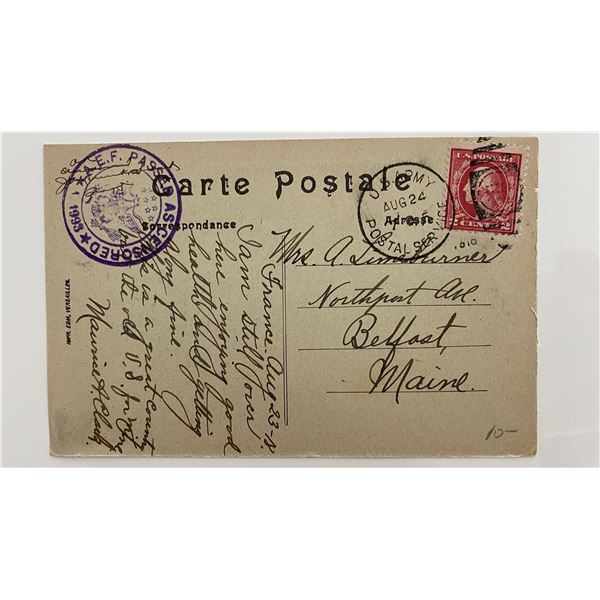 A.E.F. PASSED AS CENSORED
1998
Carte Postale
Correspondance
Adresse
U.S. ARMY
AUG 24
POSTAL SERVICE
1918
U.S. POSTAGE
2 CENTS 2
France Aug-23-18.
I am still over
here enjoying good
health and getting
along fine.
is a great country
but the old U.S. for mine
Maurice A. Clark
Mrs. A. Limeburner
Northport Ave.
Belfast,
Maine.
IMPR. EDIA, VERSAILLES.
10-